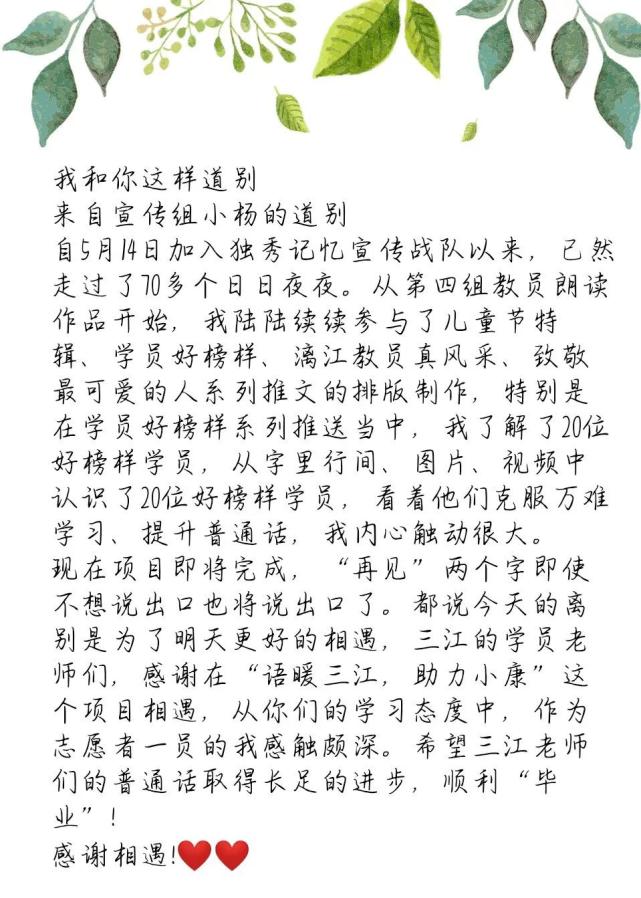 我和你这样道别
来自宣传组小杨的道别
自5月14日加入独秀记忆宣传战队以来，已然
走过了70多个日日夜夜。从第四组教员朗读
作品开始，我陆陆续续参与了儿童节特
辑、学员好榜样、漓江教员真风采、致敬
最可爱的人系列推文的排版制作，特别是
在学员好榜样系列推送当中，我了解了20位
好榜样学员，从字里行间、图片、视频中
认识了20位好榜样学员，看着他们克服万难
学习、提升普通话，我内心触动很大。
现在项目即将完成，“再见”两个字即使
不想说出口也将说出口了。都说今天的离
别是为了明天更好的相遇，三江的学员老
师们，感谢在“语暖三江，助力小康”这
个项目相遇，从你们的学习态度中，作为
志愿者一员的我感触颇深。希望三江老师
们的普通话取得长足的进步，顺利“毕
业”！
感谢相遇!❤❤